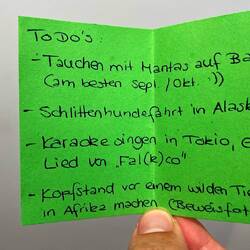 ToDo's:
- Tauchen mit Mantas auf Ba
(am besten sept. /Okt. :))
- Schlittenhundefahrt in Alask
- Karaoke singen in Tokio, e
Lied von „Fal(k)co"
- Kopfstand vor einem wilden Tie
in Afrika machen (Beweisfot